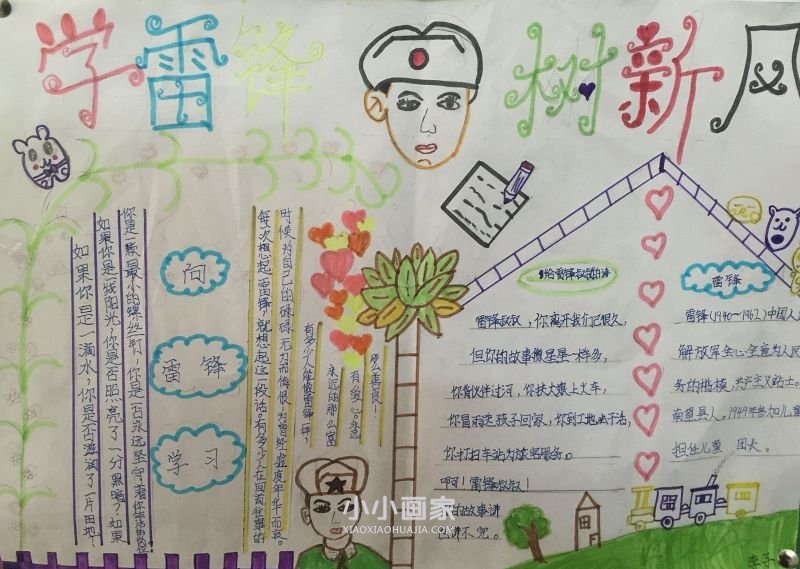 学雷锋
树新风
向
雷锋
学习
如果你是一滴水，你是否滋润了一片田地？
如果你是一线阳光，你是否照亮了一分黑暗？如果
你是一颗最小的螺丝钉，你是否永远坚守着你
每次想起雷锋，就想起这一段话。有多少人在回首往事的
时候为自己的碌碌无为而悔恨，为曾经虚度年华而哀
有多少人能像雷锋那样，
永远的那么富
有爱心。永远
那么善良！
给雷锋叔叔的诗
雷锋叔叔，你离开我们已很久，
但你的故事像星星一样多，
你背伙伴过河，你扶大娘上火车，
你冒雨送孩子回家，你到工地去干活，
你打扫车站为旅客服务。
啊！雷锋叔叔！
你的故事讲
也讲不完。
雷锋
雷锋(1940～1962)中国人
解放军全心全意为人民
务的楷模，共产主义战士。
县人。1949年参加儿童
担任儿童团长。
小小画家
XIAOXIAOHUAJIA.COM